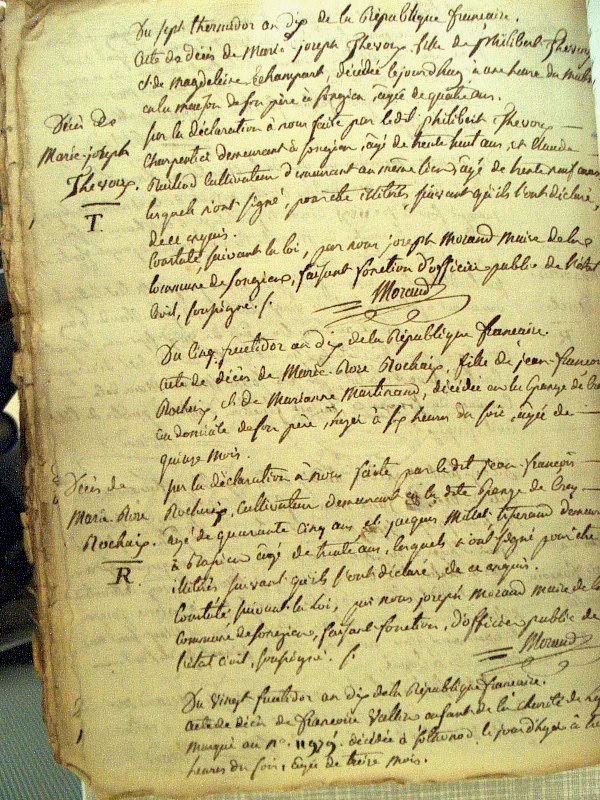 Du sept thermidor an dix de la République francaise.
acte de décès de Marie joseph Thevoux fille de philibert Thevoux
et de magdeleine Echampart, décédée le jourdhuy à une heure du matin
en la maison de son père à songieu, agée de quatre ans.
Décès de
Marie joseph
Thevoux.
T.
sur la déclaration à nous faite par ledit philibert Thevoux
Charpentier demeurant à songieu, âgé de trente huit ans, et Claude
cultivateur demeurant au même lieu, âgé de trente neuf ans
lesquels n'ont signé, pour être illitérés, suivant qu'ils l'ont déclaré,
de ce enquis.
Constaté, suivant la loi, par nous joseph Morand maire de la
commune de songieu, faisant fonction d'officier public de l'état
Civil, soussigné.
Morand
Du Cinq fructidor an dix de la République francaise.
acte de décès de Marie Roze Rochaix, fille de jean francois
Rochaix et de Marianne Martinand, décédée en la Grange de
au domicile de son père, hyer à six heures du soir, agée de
quinze mois.
Décès de
Marie Roze
Rochaix.
R
sur la déclaration à nous faite par ledit jean françois
Rochaix, cultivateur demeurant en la dite Grange de
agé de quarante cinq ans et jacques Millet tisserand demeurant
à agé de trente ans, lesquels n'ont signé pour être
illitérés suivant qu'ils l'ont déclaré de ce enquis.
Constaté suivant la loi, par nous joseph Morand maire de la
Commune de songieu, faisant fonction, d'officier public de
l'état civil, soussigné.
Morand
Du vingt fructidor an dix de la République francaise.
acte de décès de francoise enfant de la charité de
marqué au n°. décédée à le jourdhuy à
heures du soir, agée de treize mois.